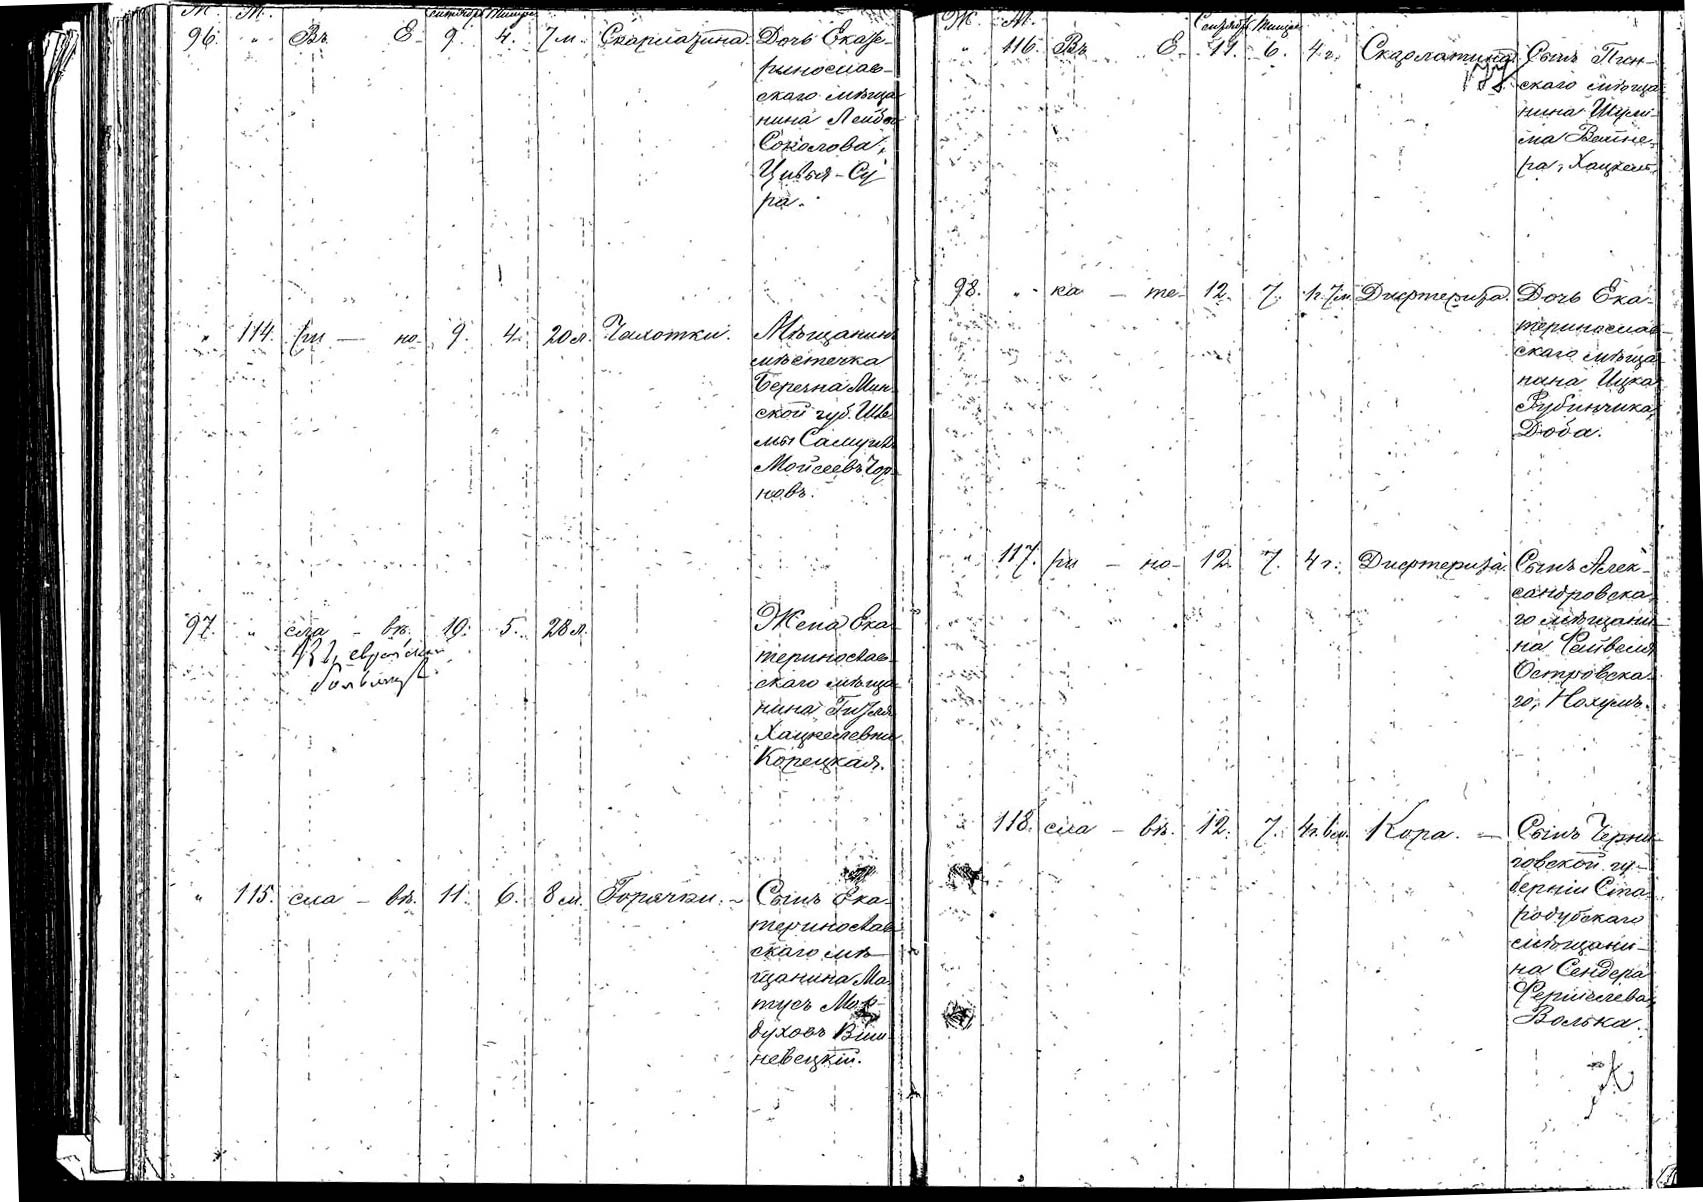 Ж. М. Сентябрь Тишри
96. " Въ Е- 9. 4. 7 м. Скарлатина. Дочь Екате-
ринослав-
скаго мѣща
нина Лейбы
Соколова,
Цивья-Су
ра.
" 114. ри — но- 9. 4. 20 л. Чахотки. Мѣщанинъ
мѣстечка
Березна Мин-
ской губ.
Самуилъ
Мойсеевъ Чер-
новъ.
97. " сла - вѣ. 10. 5. 28 л. Жена Ека-
въ еврейской
больницѣ.
теринослав-
скаго мѣща-
нина Гизля
Хацкелевна
Корецкая.
" 115. сла - вѣ. 11. 6. 8 м. Горячки. - Сынъ Ека-
теринослав-
скаго мѣ-
щанина Ма-
тусъ Мор-
духовъ Виш-
невецкій.
Ж. М. Сентябрь Тишри
" 116. Въ Е- 11. 6. 4 г. Скарлатина. Сынъ Пин-
скаго мѣща
нина Шули-
ма Вайне-
ра, Хацкель.
98. " ка - те- 12. 7. 1 г. 7 м. Дифтерита. Дочь Ека-
теринослав-
скаго мѣща
нина Ицка
Рубинчика,
Доба.
" 117. ри - но- 12. 7. 4 г. Дифтерита. Сынъ Алек-
сандровска-
го мѣщани-
на Фейвеля
Островска-
го, Нохумъ.
" 118. сла - вѣ. 12. 7. 4 г. 6 м. Кора. — Сынъ Черни-
говской гу-
берніи Ста-
родубскаго
мѣщани-
на Сендера
Фершелева,
Волька.